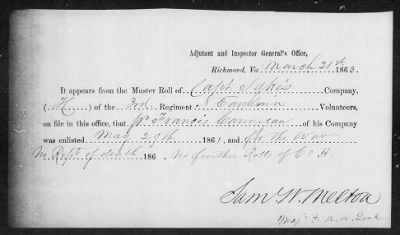 Adjutant and Inspector General's Office,
Richmond, Va. March 21st 1863.
It appears from the Muster Roll of Capt. Sykes Company,
(H) of the 3rd Regiment S Carolina Volunteers,
on file in this office, that Francis of his Company
was enlisted May 29th 1861, and for the War
Rept of death 186 . No further Rolls of Co H
Sam W. Melton
Maj & a. a. Genl